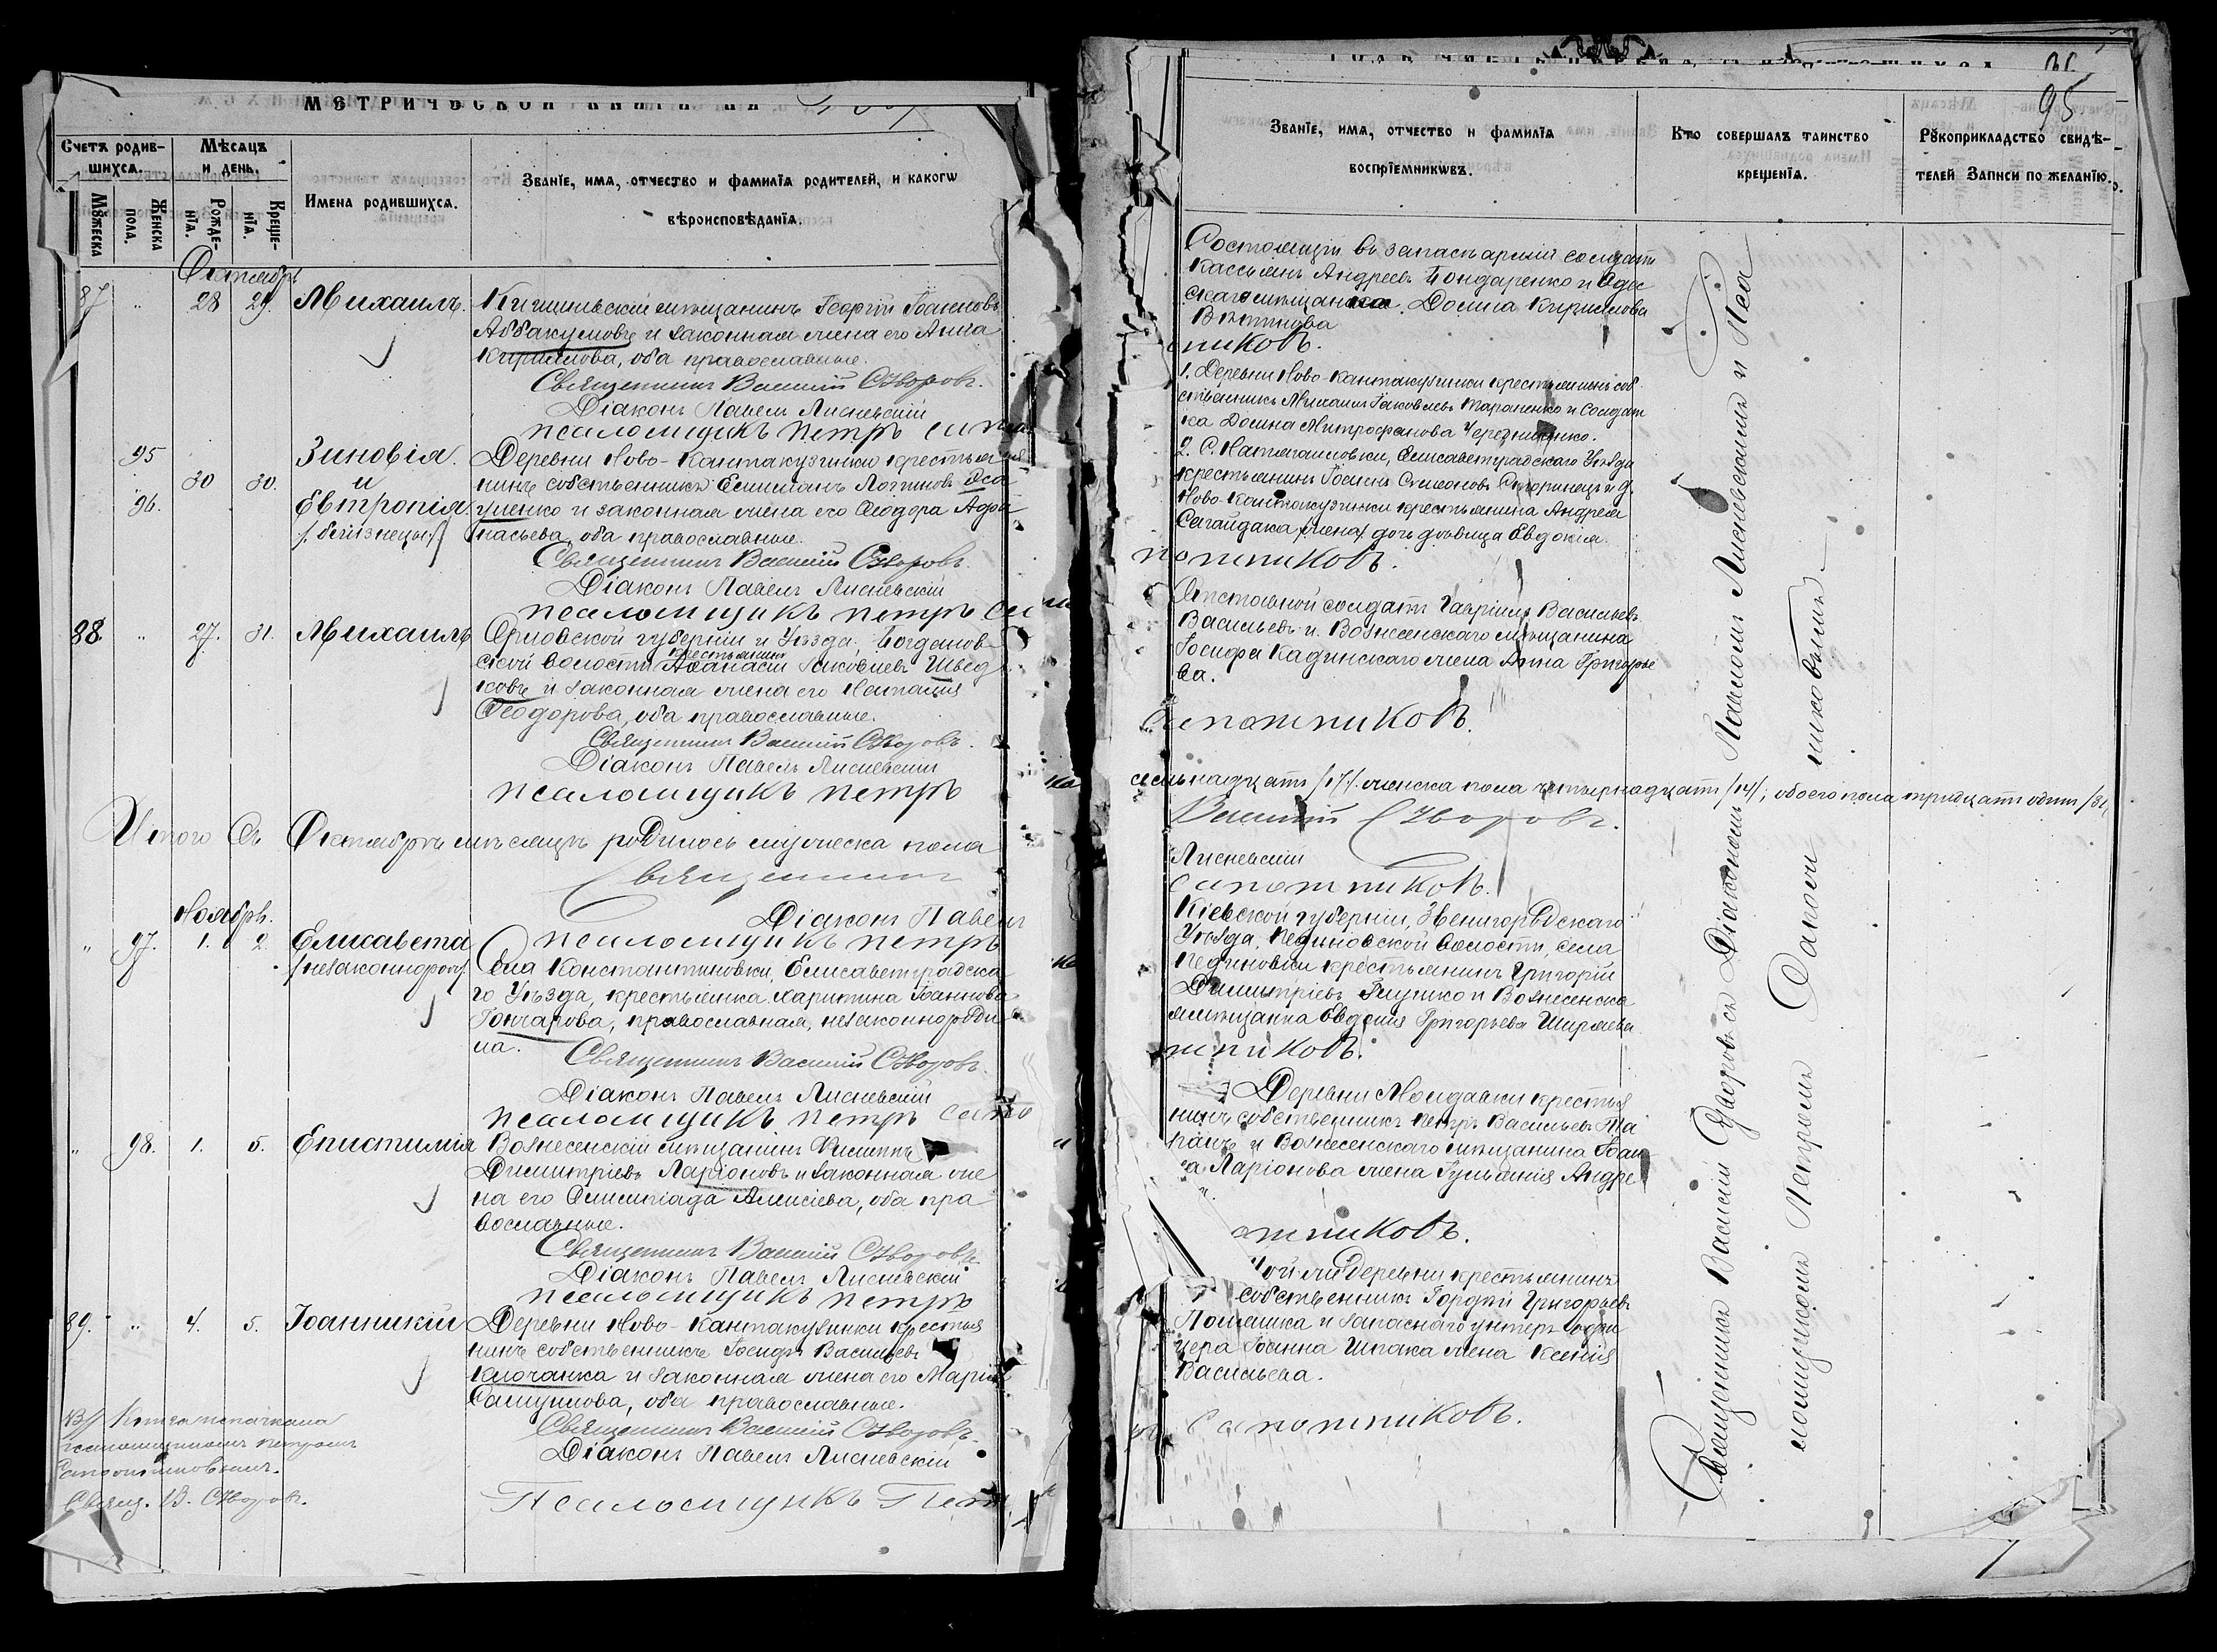 МЕТРИЧЕСКОЙ КНИГИ НА
Счетъ родив-
шихся.
Мѣсяцъ
и день.
Мужеска
Женска
пола.
Рожде-
нія.
Креще-
нія.
Имена родившихся.
Званіе, имя, отчество и фамилія родителей, и какого
вѣроисповѣданія.
Октябрь
87 " 28 29. Михаилъ.
Кишиневскій мѣщанинъ Георгій Іоанновъ
Аввакумовъ и законная жена его Анна
Кириллова, оба православные.
Священникъ Василій Суворовъ.
Діаконъ Павелъ Лисневскій
псаломщикъ петръ
95
" 96. 30 30. Зиновія.
и
Евтропія.
/близнецы/
Деревни Ново-Кантакузинки крестья
нинъ собственникъ Емиліанъ Логиновъ
и законная жена его Ѳеодора Афа
насьева, оба православные.
Священникъ Василій Суворовъ.
Діаконъ Павелъ Лисневскій
псаломщикъ петръ
88. " 27. 31. Михаилъ
Орловской губерніи и Уѣзда, Богданов-
ской волости крестьянинъ Аѳанасій Яковлевъ Швед
ковъ и законная жена его Наталія
Ѳеодорова, оба православные.
Священникъ Василій Суворовъ.
Діаконъ Павелъ Лисневскій
псаломщикъ петръ
Итого въ Октябрѣ мѣсяцѣ родилось мужеска пола
Священникъ
Діаконъ Павелъ
псаломщикъ петръ
Ноябрь.
" 97. 1. 2. Елисавета
/незаконнорож/.
Села Константиновки, Елисаветградска
го Уѣзда, крестьянка Харитина Іоаннова
Гончарова, православная, незаконнороди
ла.
Священникъ Василій Суворовъ.
Діаконъ Павелъ Лисневскій
псаломщикъ петръ
" 98. 1. 5. Епистимія
Вознесенскій мѣщанинъ Филиппъ
Димитріевъ Ларіоновъ и законная же
на его Олимпіада Алексіева, оба пра
вославные.
Священникъ Василій Суворовъ.
Діаконъ Павелъ Лисневскій
псаломщикъ петръ
89. " 4. 5. Іоанникій
Деревни Ново-Кантакузинки крестья
нинъ собственникъ Іосифъ Васильевъ
Клочанка и законная жена его Марія
Самуилова, оба православные.
Священникъ Василій Суворовъ.
Діаконъ Павелъ Лисневскій
Псаломщикъ Петръ
псаломщикомъ петромъ
Сапотниковымъ.
Свящ. В. Суворовъ.
95
Званіе, имя, отчество и фамилія
воспріемниковъ.
Кто совершалъ таинство
крещенія.
Рукоприкладство свидѣ-
телей записи по желанію.
Состоящій въ запасѣ арміи солдатъ
Кассіянъ Андреевъ Бондаренко и Одес
скаго мѣщанина Домна Кириллова
никовъ.
1. Деревни Ново-Кантакузинки крестьянинъ соб
ственникъ Михаилъ Іаковлевъ Тараненко и Солдат
ка Домна Митрофанова Чередниченко.
2. С. Наталіановки, Елисаветградскаго Уѣзда
крестьянинъ Іосифъ Симеоновъ и д.
Ново-Кантакузинки крестьянина Андрея
Сагайдака дочь дѣвица Евдокія.
потниковъ.
Отставной солдатъ Гавріилъ Васильевъ
Васильевъ и Вознесенскаго мѣщанина
Іосифа Кадинскаго жена Анна Григорье
ва.
Сапотниковъ.
семьнадцать /17/. женска пола четырнадцать /14/; обоего пола тридцать одинъ /31/
Василій Суворовъ.
Лисневскій
Сапотниковъ.
Кіевской губерніи, Звенигородскаго
Уѣзда, Кединовской волости, села
Кединовки крестьянинъ Григорій
Димитріевъ Глушко и Вознесенска
мѣщанка Евдокія Григорьева Ширяева
тниковъ.
Деревни Молдавки крестья
нинъ собственникъ Петръ Васильевъ Та
ранъ и Вознесенскаго мѣщанина Іоан
на Ларіонова жена Гликерія Андре
отниковъ.
Той-же деревни крестьянинъ
собственникъ Гордій Григорьевъ
и запаснаго унтеръ офи
цера Іоанна Шпака жена Ксенія
Васильева.
Сапотниковъ.
Священникъ Василій Суворовъ съ Діакономъ Павломъ Лисневскимъ и Пса
ломщикомъ Петромъ Сапотниковымъ